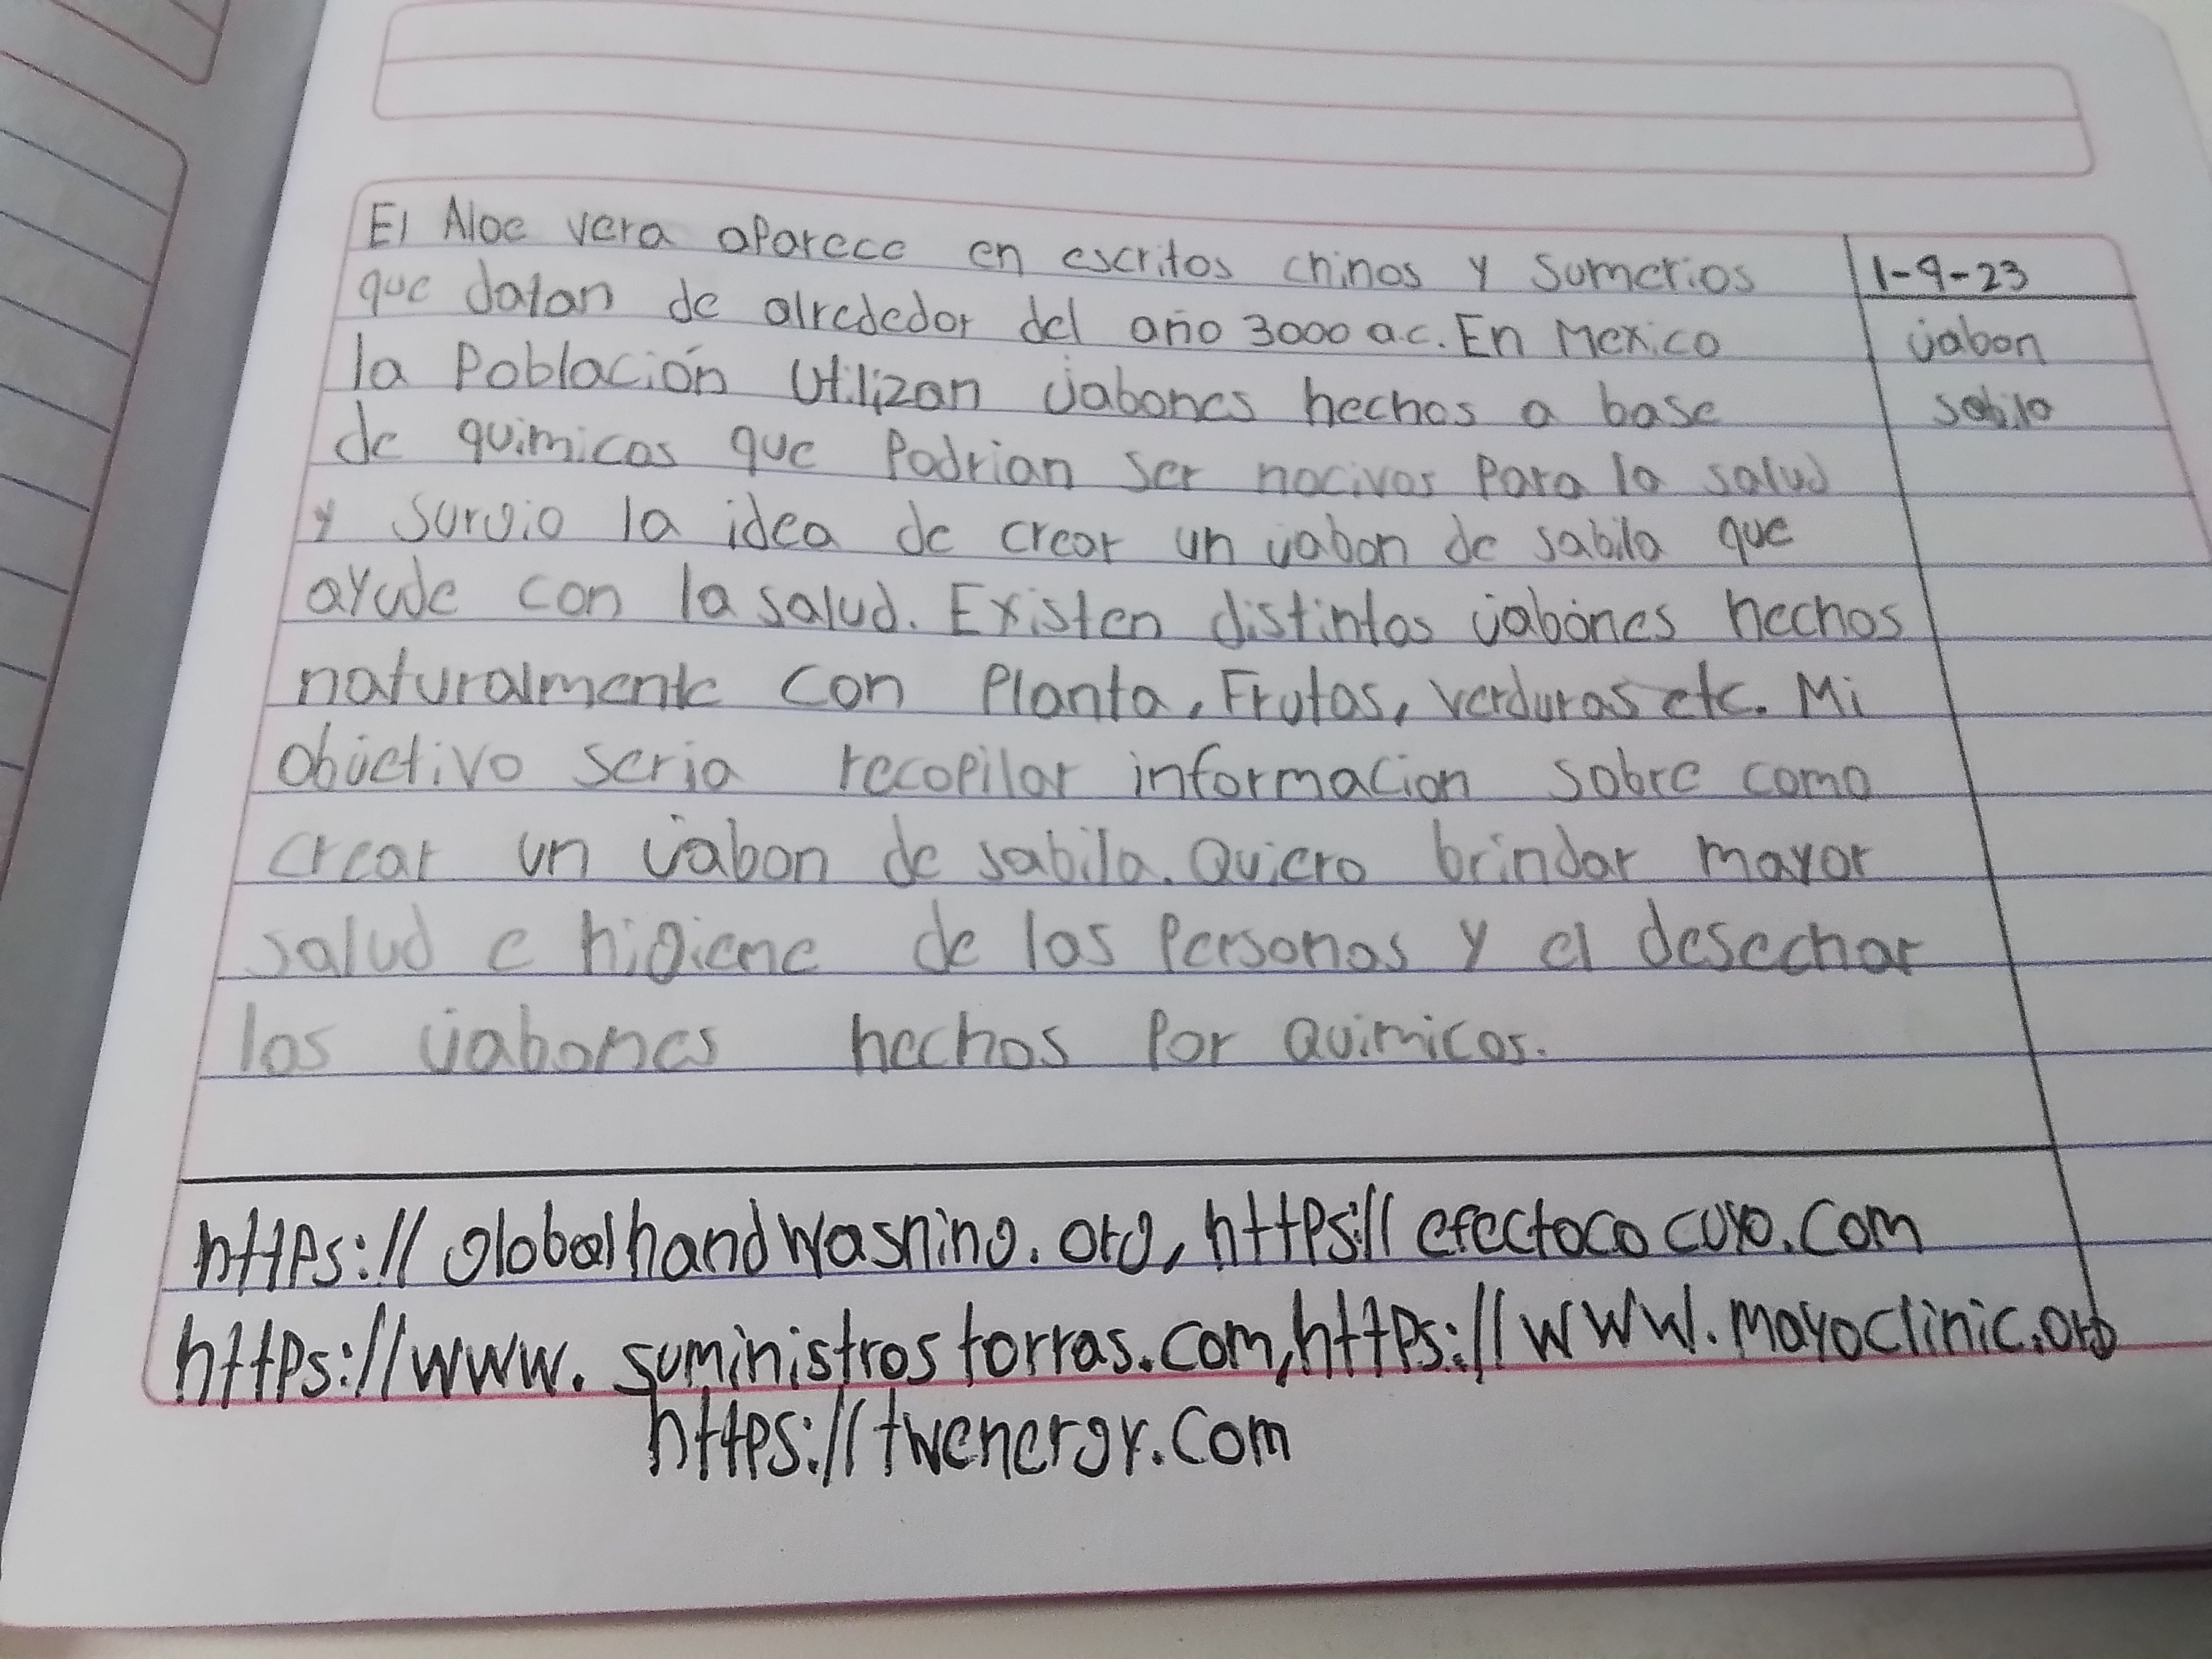 El Aloe vera aparece en escritos chinos y sumerios
que datan de alrededor del año 3000 a.c. En Mexico
la Población utilizan jabones hechos a base
de quimicos que Podrian ser nocivos Para la salud
y surgio la idea de crear un jabon de sabila que
ayude con la salud. Existen distintos jabones hechos
naturalmente con Planta, Frutas, verduras etc. Mi
objetivo seria recopilar informacion sobre como
crear un jabon de sabila. Quiero brindar mayor
salud e higiene de las Personas y el desechar
los jabones hechos Por Quimicos.
1-9-23
jabon
sabila
https://globalhandwashing.org, https://efectococuyo.com
https://www.suministrostorras.com, https://www.mayoclinic.org
https://twenergy.com